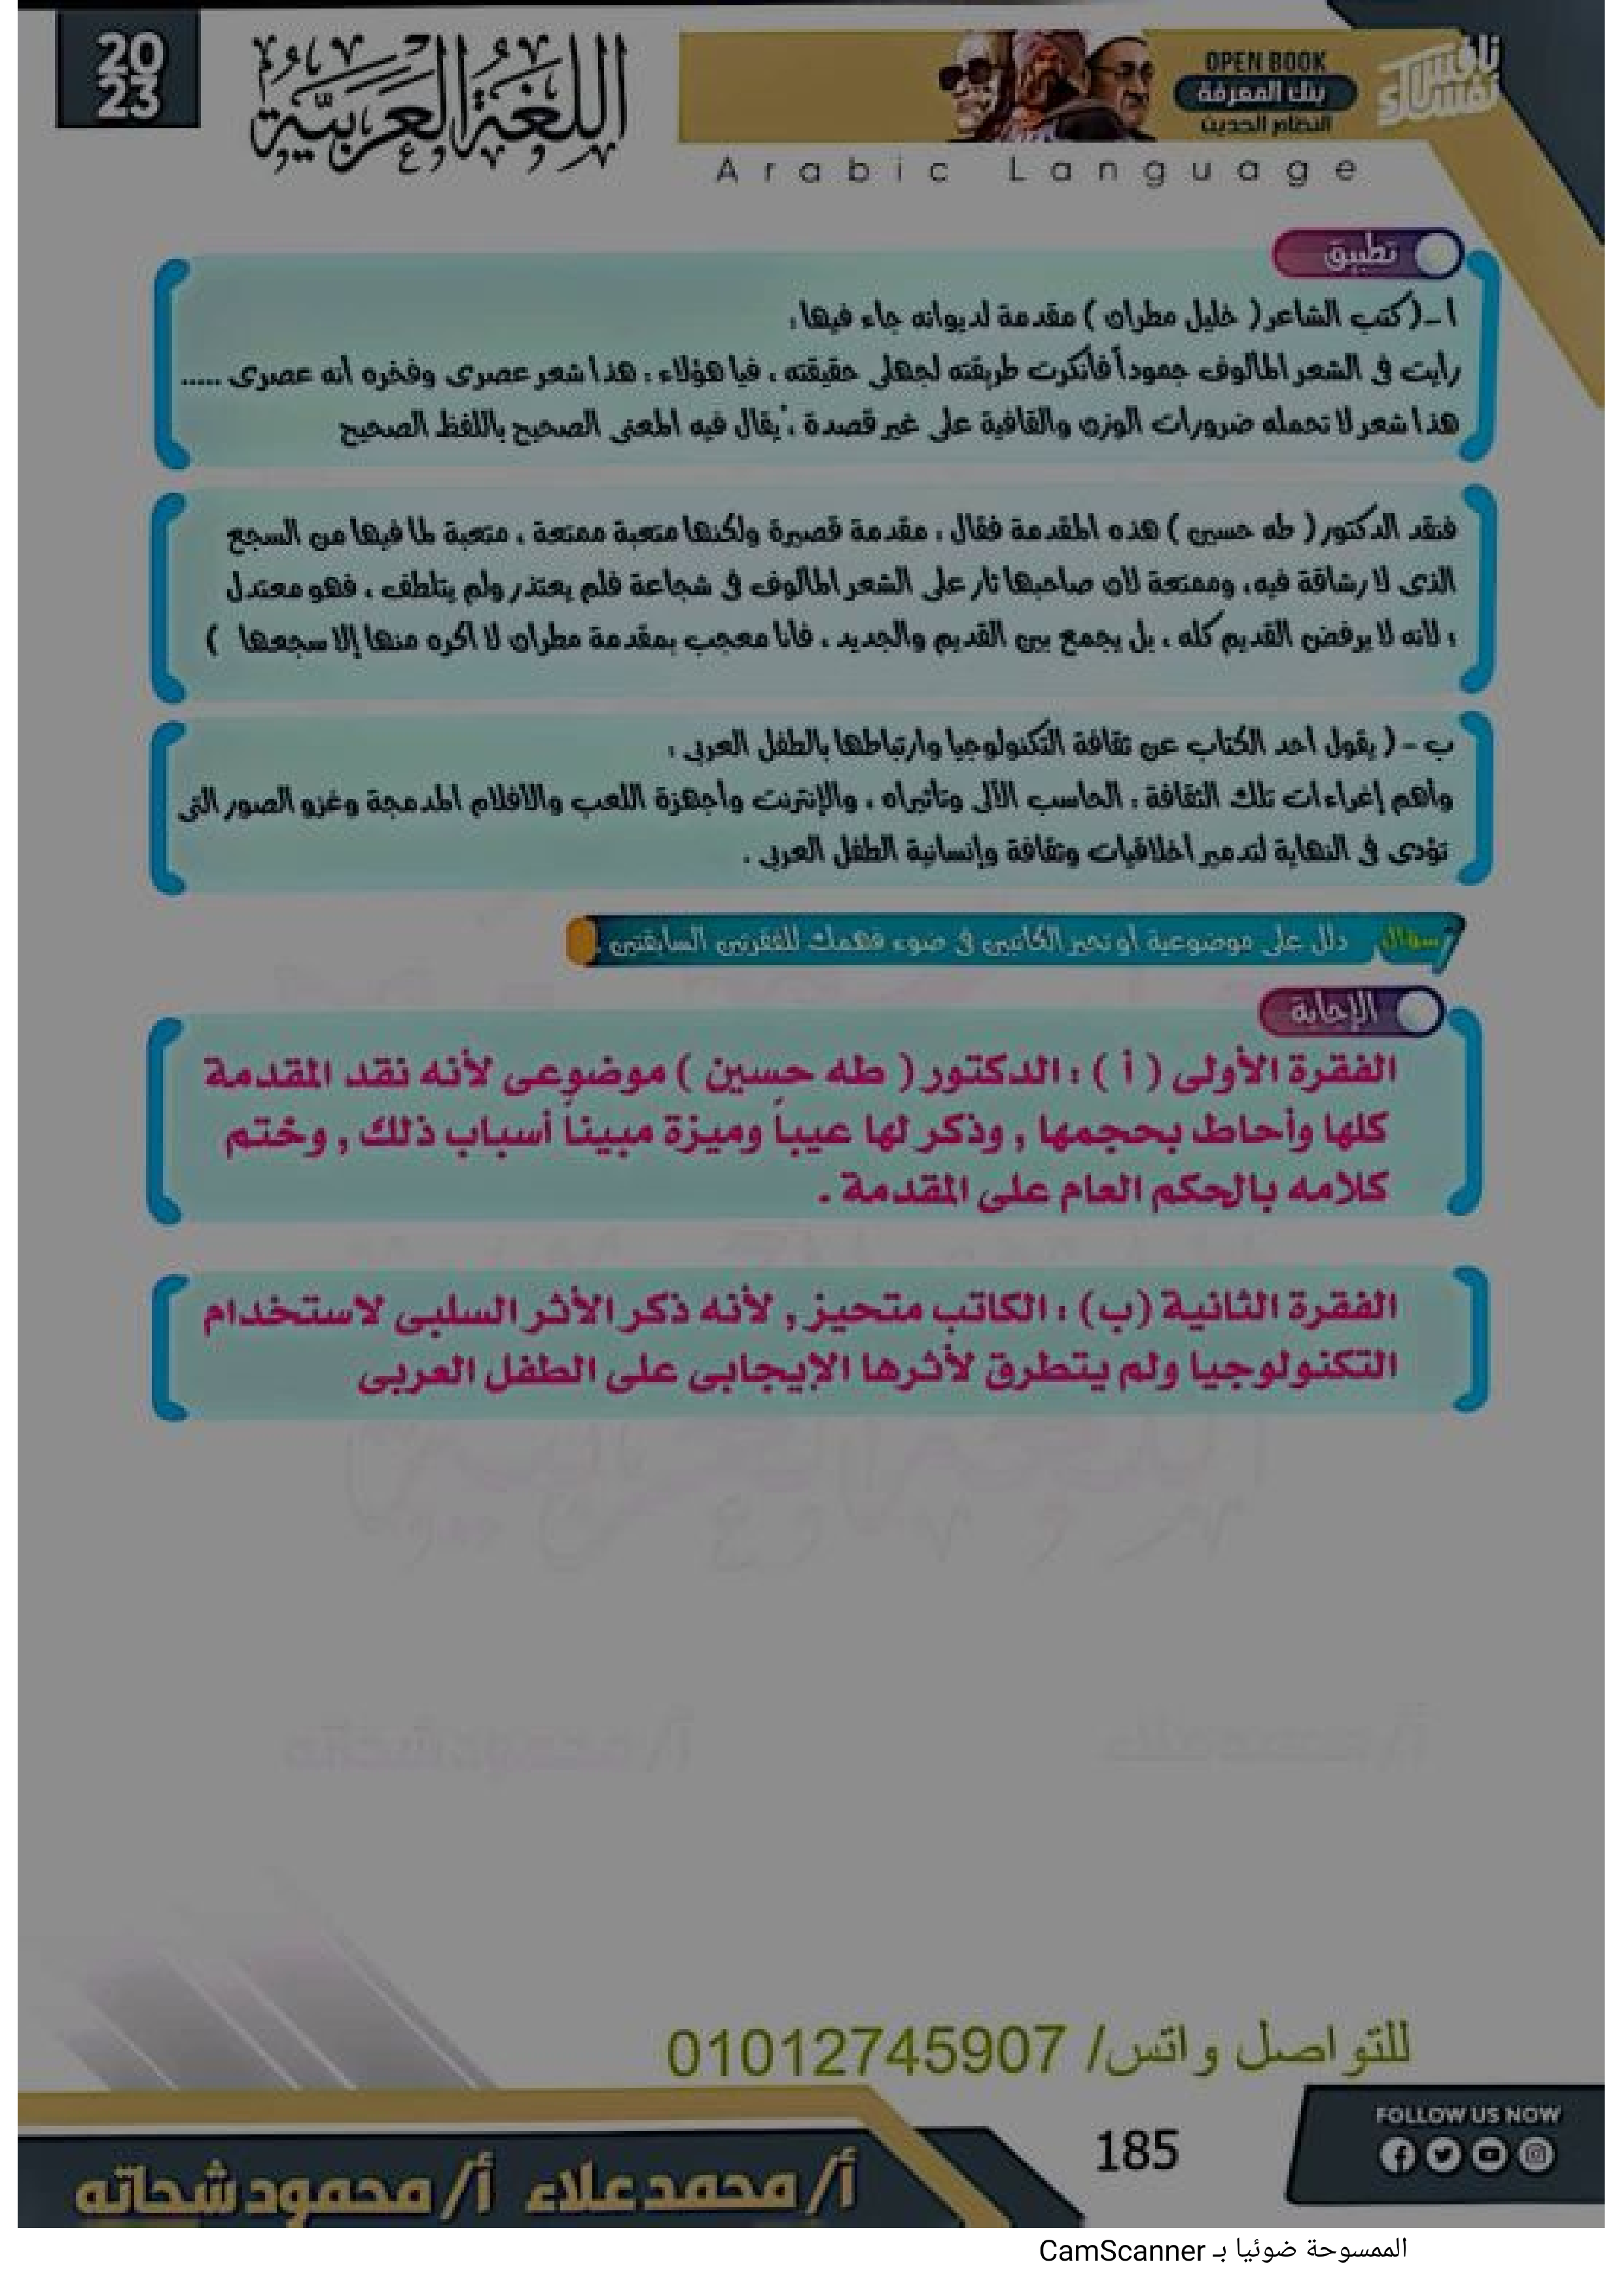 20
23
اللغة العربية
OPEN BOOK
بنك المعرفة
النظام الحديث
نافس نفسك
Arabic Language
تطبيق
أ_( كتب الشاعر ( خليل مطران ) مقدمة لديوانه جاء فيها :
رأيت فى الشعر المألوف جموداً فأنكرت طريقته لجهلى حقيقته ، فيا هؤلاء : هذا شعر عصرى وفخره أنه عصرى .....
هذا شعر لا تحمله ضرورات الوزن والقافية على غير قصدة ، يُقال فيه المعنى الصحيح باللفظ الصحيح
فنقد الدكتور ( طه حسين ) هذه المقدمة فقال : مقدمة قصيرة ولكنها متعبة ممتعة ، متعبة لما فيها من السجع
الذى لا رشاقة فيه، وممتعة لأن صاحبها ثار على الشعر المألوف فى شجاعة فلم يعتذر ولم يتلطف ، فهو معتدل
؛ لأنه لا يرفض القديم كله ، بل يجمع بين القديم والجديد ، فأنا معجب بمقدمة مطران لا أكره منها إلا سجعها )
ب - ( يقول أحد الكتاب عن ثقافة التكنولوجيا وارتباطها بالطفل العربى :
وأهم إغراءات تلك الثقافة : الحاسب الآلى وتأثيراه ، والإنترنت وأجهزة اللعب والأفلام المدمجة وغزو الصور التى
تؤدى فى النهاية لتدمير أخلاقيات وثقافة وإنسانية الطفل العربى .
سؤال دلل على موضوعية أو تحيز الكاتبين فى ضوء فهمك للفقرتين السابقتين .
الإجابة
الفقرة الأولى ( أ ) : الدكتور ( طه حسين ) موضوعى لأنه نقد المقدمة
كلها وأحاط بحجمها , وذكر لها عيباً وميزة مبيناً أسباب ذلك , وختم
كلامه بالحكم العام على المقدمة .
الفقرة الثانية (ب) : الكاتب متحيز , لأنه ذكر الأثر السلبى لاستخدام
التكنولوجيا ولم يتطرق لأثرها الإيجابى على الطفل العربى
للتواصل واتس/ 01012745907
FOLLOW US NOW
185
أ/ محمد علاء أ/ محمود شحاته
الممسوحة ضوئيا بـ CamScanner